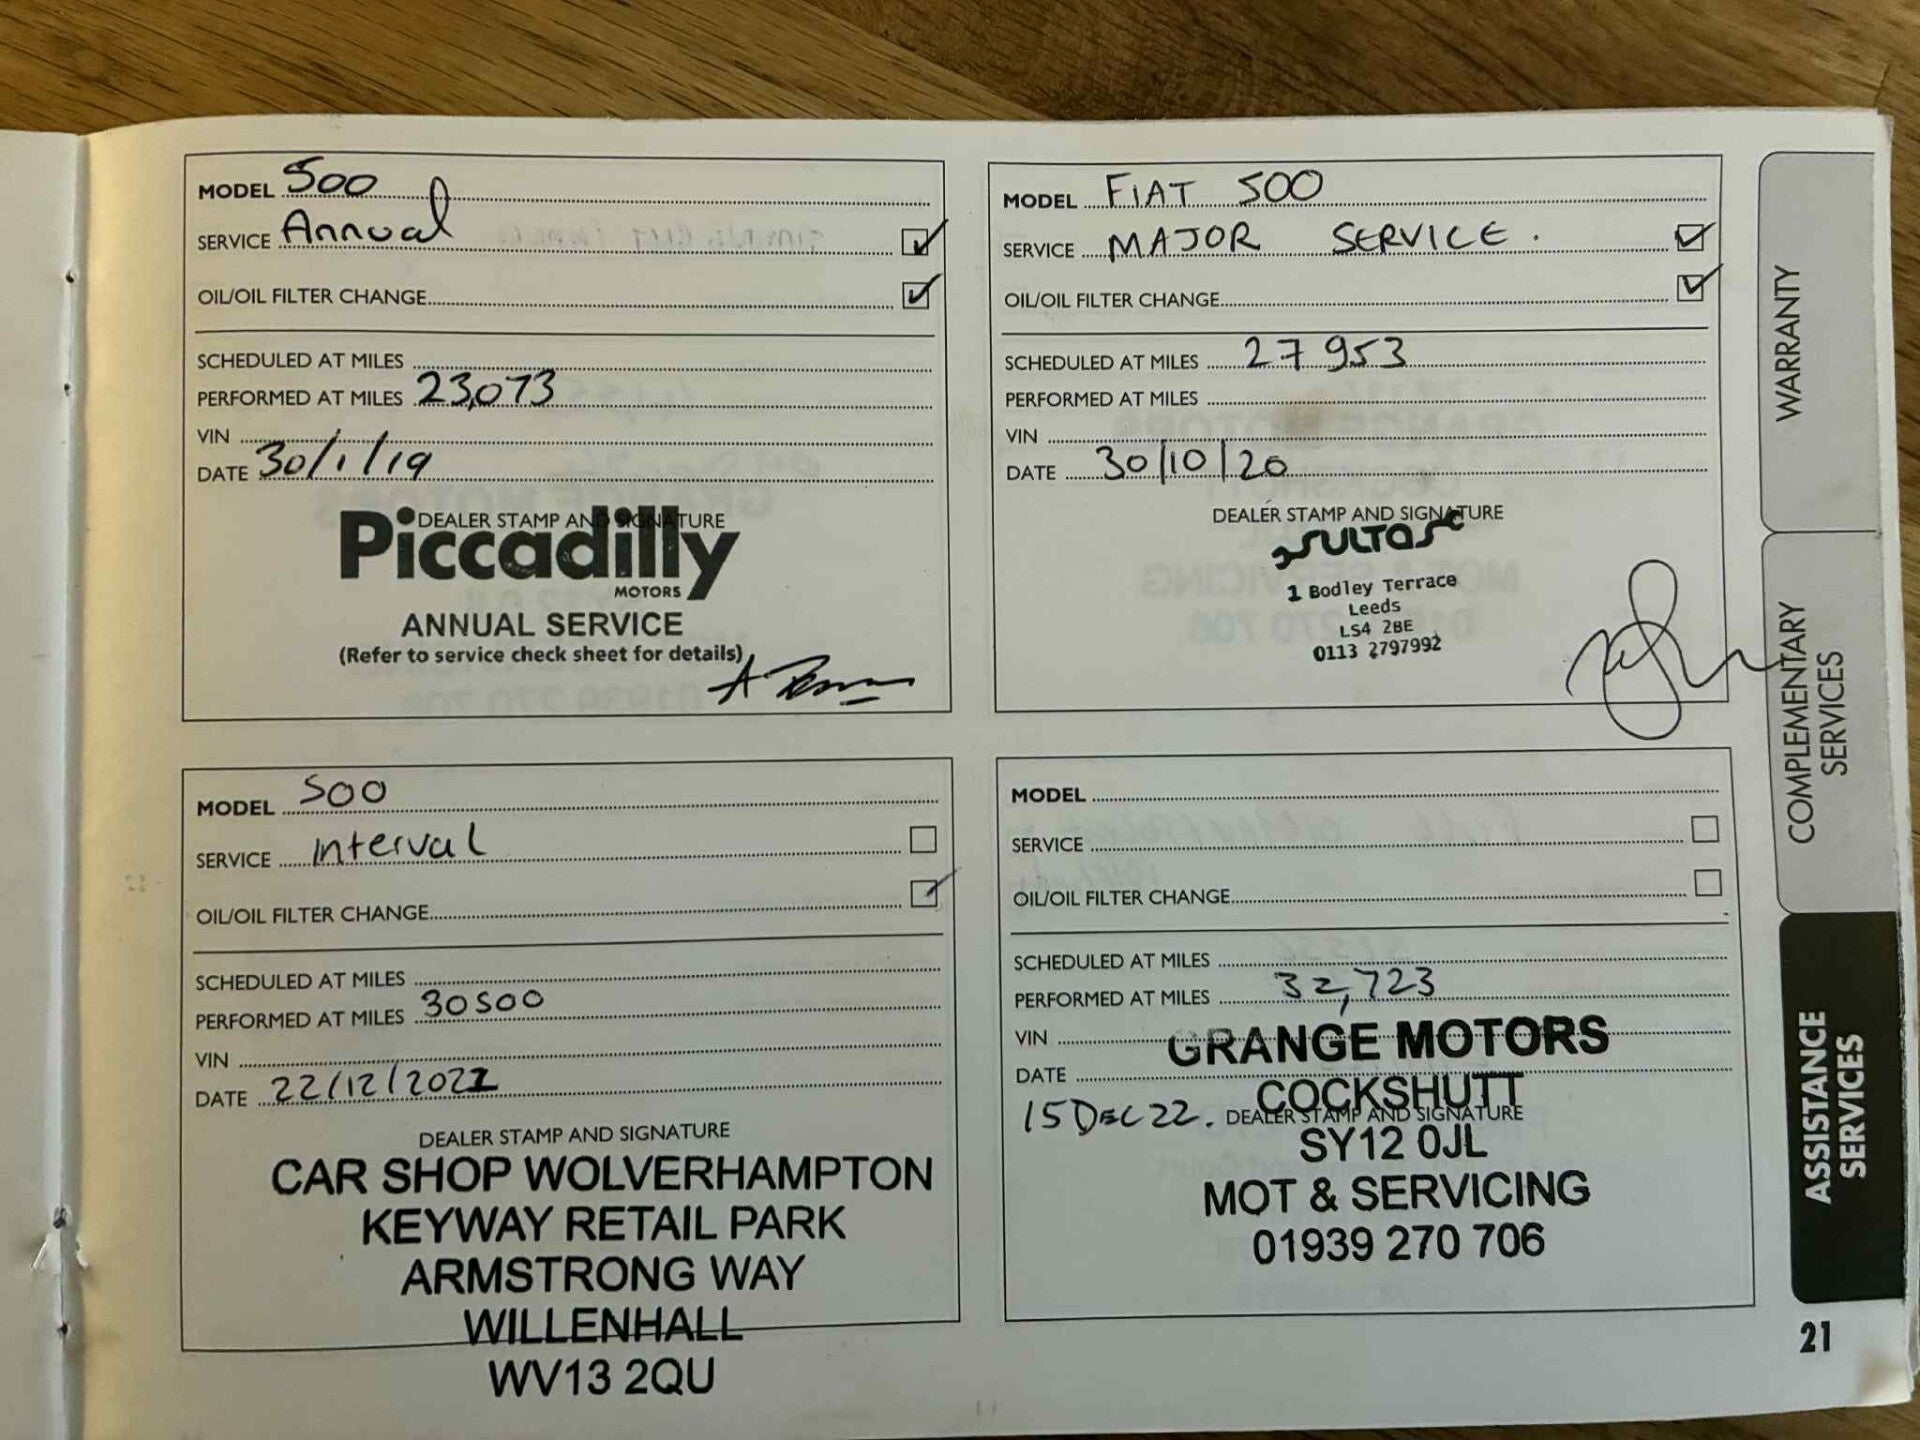 MODEL 500
SERVICE Annual
OIL/OIL FILTER CHANGE
SCHEDULED AT MILES
PERFORMED AT MILES 23,073
VIN
DATE 30/1/19
DEALER STAMP AND SIGNATURE
Piccadilly
MOTORS
ANNUAL SERVICE
(Refer to service check sheet for details)
MODEL FIAT 500
SERVICE MAJOR SERVICE.
OIL/OIL FILTER CHANGE
SCHEDULED AT MILES 27953
PERFORMED AT MILES
VIN
DATE 30/10/20
DEALER STAMP AND SIGNATURE
SULTAS
1 Bodley Terrace
Leeds
LS4 2BE
0113 2797992
MODEL 500
SERVICE interval
OIL/OIL FILTER CHANGE
SCHEDULED AT MILES
PERFORMED AT MILES 30500
VIN
DATE 22/12/2021
DEALER STAMP AND SIGNATURE
CAR SHOP WOLVERHAMPTON
KEYWAY RETAIL PARK
ARMSTRONG WAY
WILLENHALL
WV13 2QU
MODEL
SERVICE
OIL/OIL FILTER CHANGE
SCHEDULED AT MILES
PERFORMED AT MILES 32,723
VIN
GRANGE MOTORS
DATE
COCKSHUTT
15 DEC 22. DEALER STAMP AND SIGNATURE
SY12 0JL
MOT & SERVICING
01939 270 706
WARRANTY
COMPLEMENTARY
SERVICES
ASSISTANCE
SERVICES
21